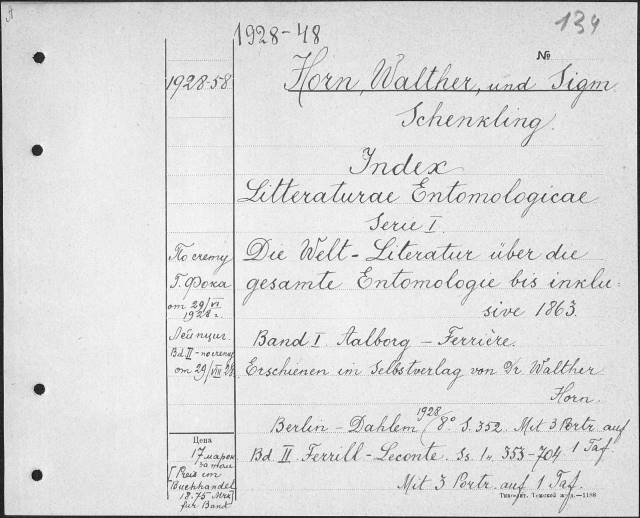 A
1928-48
134
№
1928-58
Horn, Walther, und Sigm.
Schenkling.
Index
Litteraturae Entomologicae
Serie I.
Die Welt-Literatur über die
gesamte Entomologie bis inklu-
sive 1863.
Band I. Aalborg - Ferrière.
Erschienen im Selbstverlag von Dr Walther
Horn.
Berlin - Dahlem 1928/8° S. 352. Mit 3 Portr. auf
1 Taf.
Bd. II. Ferrill-Leconte. Ss. 353-704
Mit 3 Portr. auf 1 Taf.
По счету
Г. Фока
от 29/VI
1928 г.
Лейпциг.
Bd. II - по счету
от 29/VIII 28
Цена
17 марок
за том
[Preis im
Buchhandel
18.75 Mrk
für Band
Типо-лит. Томской ж.д.—1188